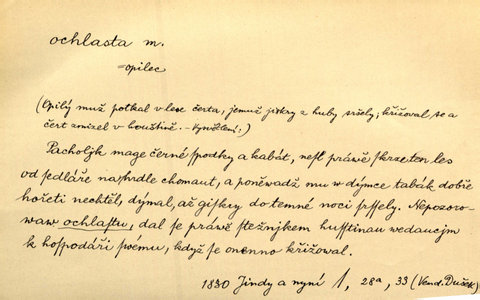 ochlasta m.
=opilec
(Opilý muž potkal v lese čerta, jemuž jiskry z huby sršely; křižoval se a
čert zmizel v houštině. - Vysvětlení:)
Pacholjk mage černé spodky a kabát, nesl práwě skrze ten les
od sedláře na hrdle chomaut, a poněwadž mu w dýmce tabák dobře
hořeti nechtěl, dýmal, až giskry do temné noci srssely. Nepozoro-
waw ochlastu, dal se práwě stežnjkem husstinau wedaucjm
k hospodáři swému, když se onenno křižowal.
1830 Jindy a nyní 1, 28a, 33 (Vend. Dušek)